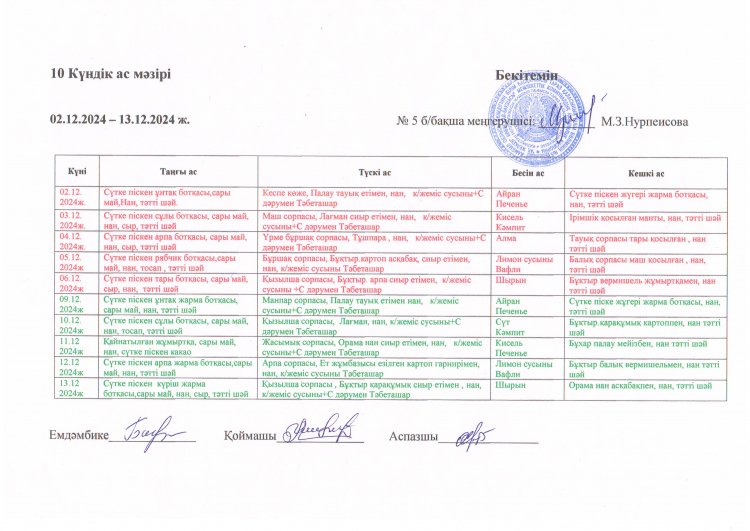 10 Күндік ас мәзірі Бекітемін
02.12.2024 – 13.12.2024 ж. № 5 б/бақша меңгерушісі: М.З.Нурпеисова
Күні Таңғы ас Түскі ас Бесін ас Кешкі ас
02.12. Сүтке піскен ұнтақ ботқасы,сары Кеспе көже, Палау тауық етімен, нан, к/жеміс сусыны+С Айран Сүтке піскен жүгері жарма ботқасы,
2024ж. май,Нан, тәтті шәй. дәрумен Тәбеташар Печенье нан, тәтті шәй
03.12. Сүтке піскен сұлы ботқасы, сары май, Маш сорпасы, Лағман сиыр етімен, нан, к/жеміс Кисель Ірімшік қосылған манты, нан, тәтті шәй
2024ж. нан, сыр, тәтті шәй сусыны+С дәрумен Тәбеташар Кәмпит
04.12. Сүтке піскен арпа ботқасы, сары май, Үрме бұршақ сорпасы, Тұшпара , нан, к/жеміс сусыны+С Алма Тауық сорпасы тары қосылған , нан
2024ж. нан, сыр, тәтті шәй дәрумен Тәбеташар тәтті шәй
05.12. Сүтке піскен рябчик ботқасы,сары Бұршақ сорпасы, Бұқтыр.картоп асқабақ, сиыр етімен, Лимон сусыны Балық сорпасы маш қосылған , нан,
2024ж. май, нан, тосап , тәтті шәй нан, к/жеміс сусыны Тәбеташар Вафли тәтті шәй
06.12. Сүтке піскен тары ботқасы, сары май, Қызылша сорпасы, Бұқтыр. арпа сиыр етімен, к/жеміс Шырын Бұқтыр вермишель жұмыртқамен, нан
2024ж. сыр, нан, тәтті шәй сусыны +С дәрумен Тәбеташар тәтті шәй
09.12. Сүтке піскен ұнтақ жарма ботқасы, Манпар сорпасы, Палау тауық етімен нан, к/жеміс Айран Сүтке піске жүгері жарма ботқасы, нан,
2024ж сары май, нан, тәтті шәй сусыны+С дәрумен Тәбеташар Печенье тәтті шәй
10.12. Сүтке піскен сұлы ботқасы, сары май, Қызылша сорпасы, Лагман, нан, к/жеміс сусыны+С Сүт Бұқтыр.қарақұмық картоппен, нан тәтті
2024ж нан, тосап, тәтті шәй дәрумен Тәбеташар Кәмпит шәй
11.12 Қайнатылған жұмыртқа, сары май, Жасымық сорпасы, Орама нан сиыр етімен, нан, к/жеміс Кисель Бұхар палау мейізбен, нан, тәтті шәй
2024ж нан, сүтке піскен какао сусыны+С дәрумен Тәбеташар Печенье
12.12 Сүтке піскен арпа жарма ботқасы,сары Арпа сорпасы, Ет жұмбазысы езілген картоп гарнирімен, Лимон сусыны Бұқтыр балық вермишельмен, нан тәтті
2024ж май, нан, тәтті шәй нан, к/жеміс сусыны Тәбеташар Вафли шәй
13.12 Сүтке піскен күріш жарма Қызылша сорпасы , Бұқтыр қарақұмық сиыр етімен , нан, Шырын Орама нан асқабақпен, нан, тәтті шәй
2024ж ботқасы,сары май, нан, сыр, тәтті шәй к/жеміс сусыны+С дәрумен Тәбеташар
Емдәмбике Қоймашы Аспазшы